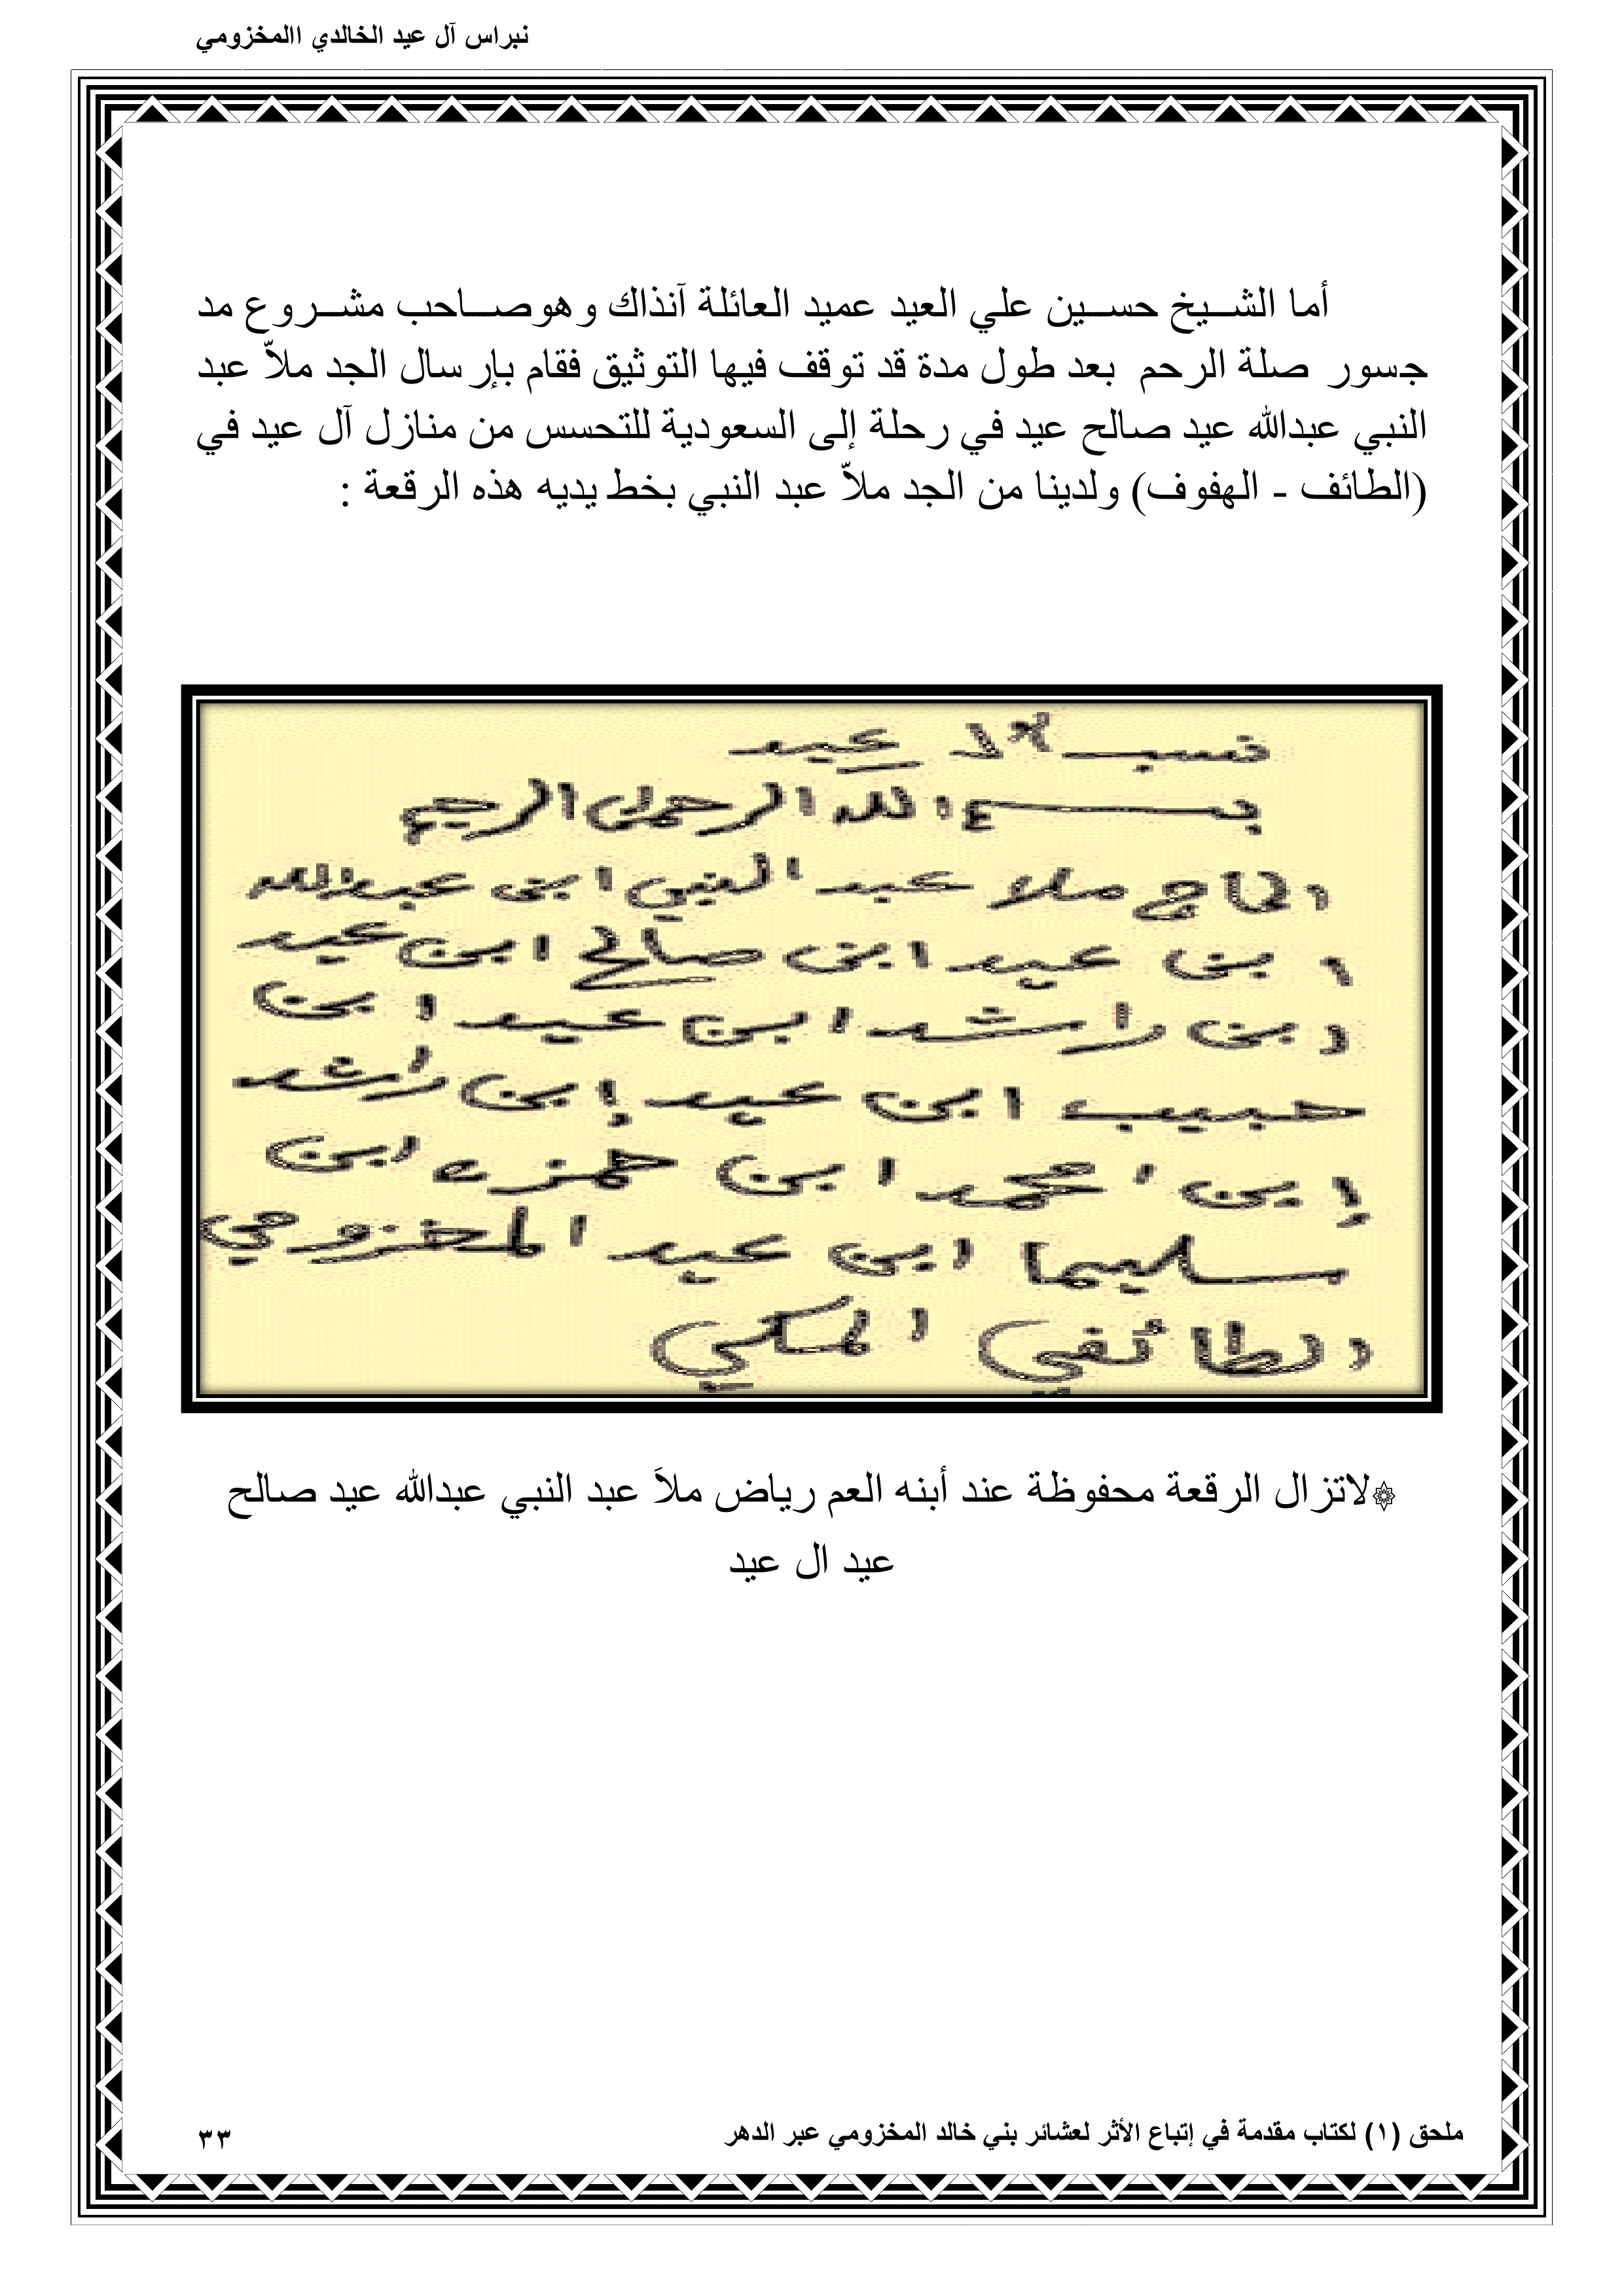 نبراس آل عيد الخالدي االمخزومي
أما الشيخ حسين علي العيد عميد العائلة آنذاك وهوصاحب مشروع مد
جسور صلة الرحم بعد طول مدة قد توقف فيها التوثيق فقام بإرسال الجد ملاّ عبد
النبي عبدالله عيد صالح عيد في رحلة إلى السعودية للتحسس من منازل آل عيد في
(الطائف - الهفوف) ولدينا من الجد ملاّ عبد النبي بخط يديه هذه الرقعة :
نسب آل عيد
بسم الله الرحمن الرحيم
الحاج ملا عبد النبي ابن عبدالله
ابن عيد ابن صالح ابن عيد
ابن راشد ابن عيد ابن
حبيب ابن عيد إبن راشد
إبن امحمد ابن حمزه ابن
سليما ابن عيد المخزومي
الطائفي المكي
۞لاتزال الرقعة محفوظة عند أبنه العم رياض ملاَ عبد النبي عبدالله عيد صالح
عيد ال عيد
ملحق (١) لكتاب مقدمة في إتباع الأثر لعشائر بني خالد المخزومي عبر الدهر
٣٣